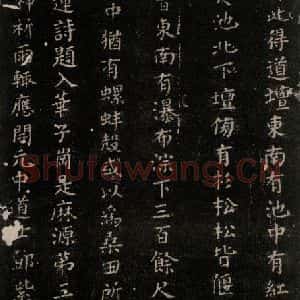 此得道壇東南有池中有紅
矣池北下壇傍有杉松松皆偃
音東南有瀑布淙下三百餘尺
中猶有螺蚌殼或以為桑田所
運詩題入華子崗是麻源第三
祈雨輒應開中道士鄧紫
Shufawang.CN